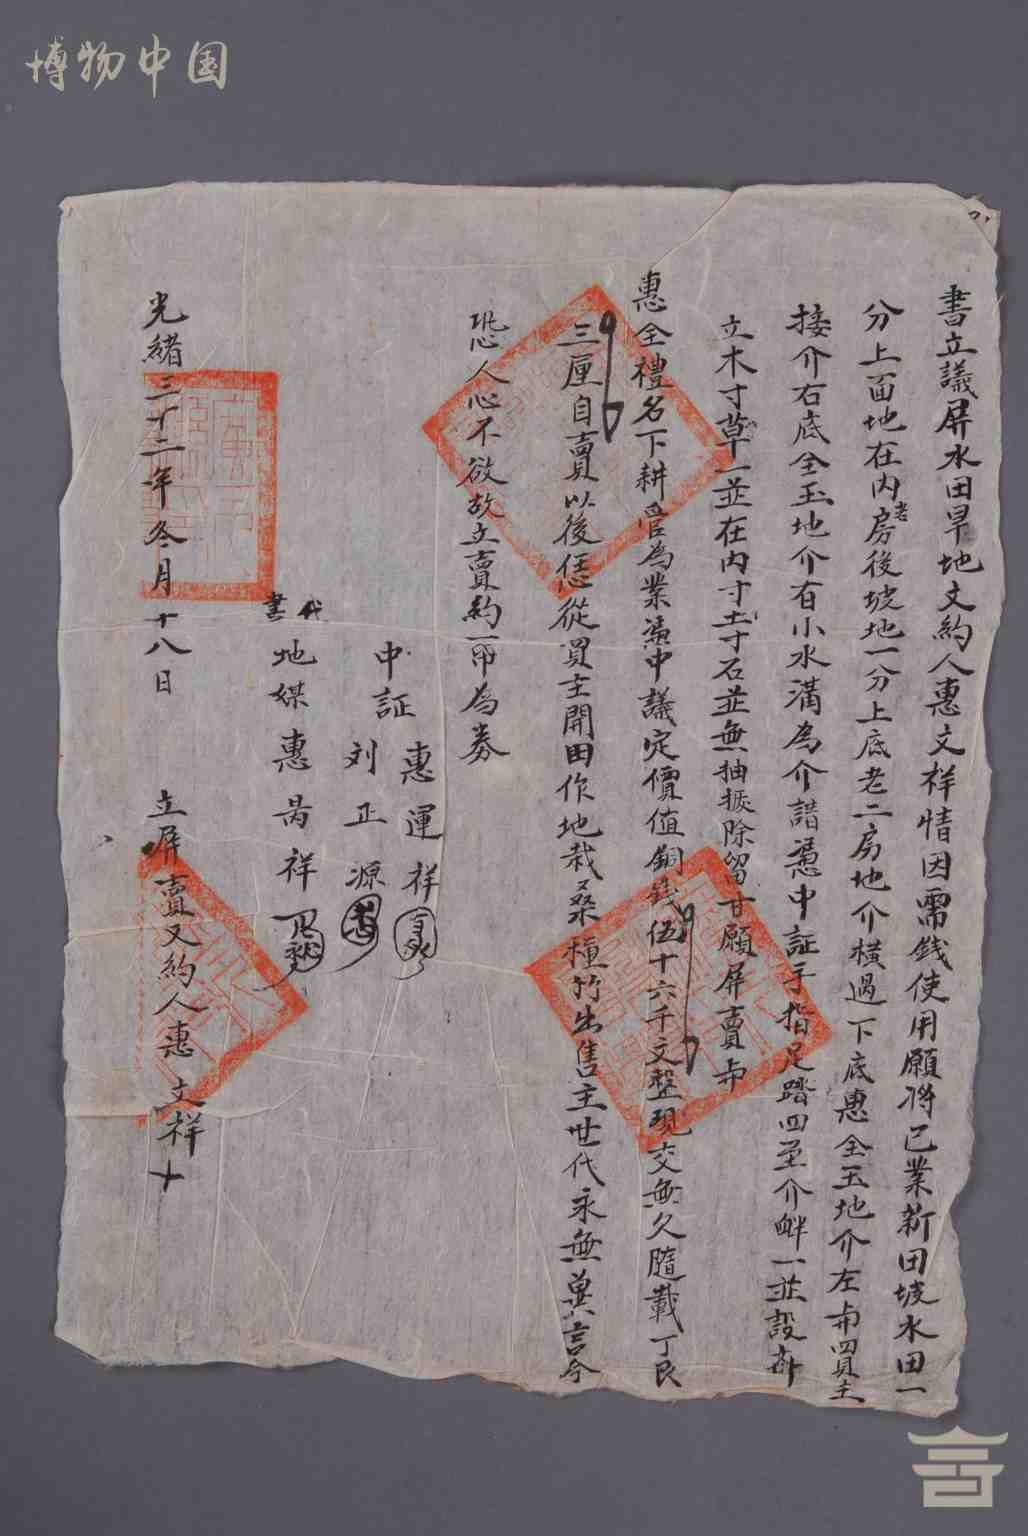 博物中国
書立議屏水田旱地文約人惠文祥情因需錢使用願將己業新田坡水田一
分上面地在内老房後坡地一分上底老二房地介橫過下底惠全玉地介左与買主
接介右底全玉地介有小水溝為介諎憑中証手指足踏四至介畔一並設
立木寸草一並在内寸土寸石並無抽扳除留甘願屏賣与
惠全禮名下耕管為業憑中議定價值銅錢伍十六千文整現交無久隨載丁良
三厘自賣以後恁從買主開田作地栽桑種竹出售主世代永無異言今
恐人心不欲故立賣約一帋為券
中証
惠運祥
刘正源
代書
地媒惠昺祥
光緒三十二年冬月十八日 立屏賣文約人惠文祥十